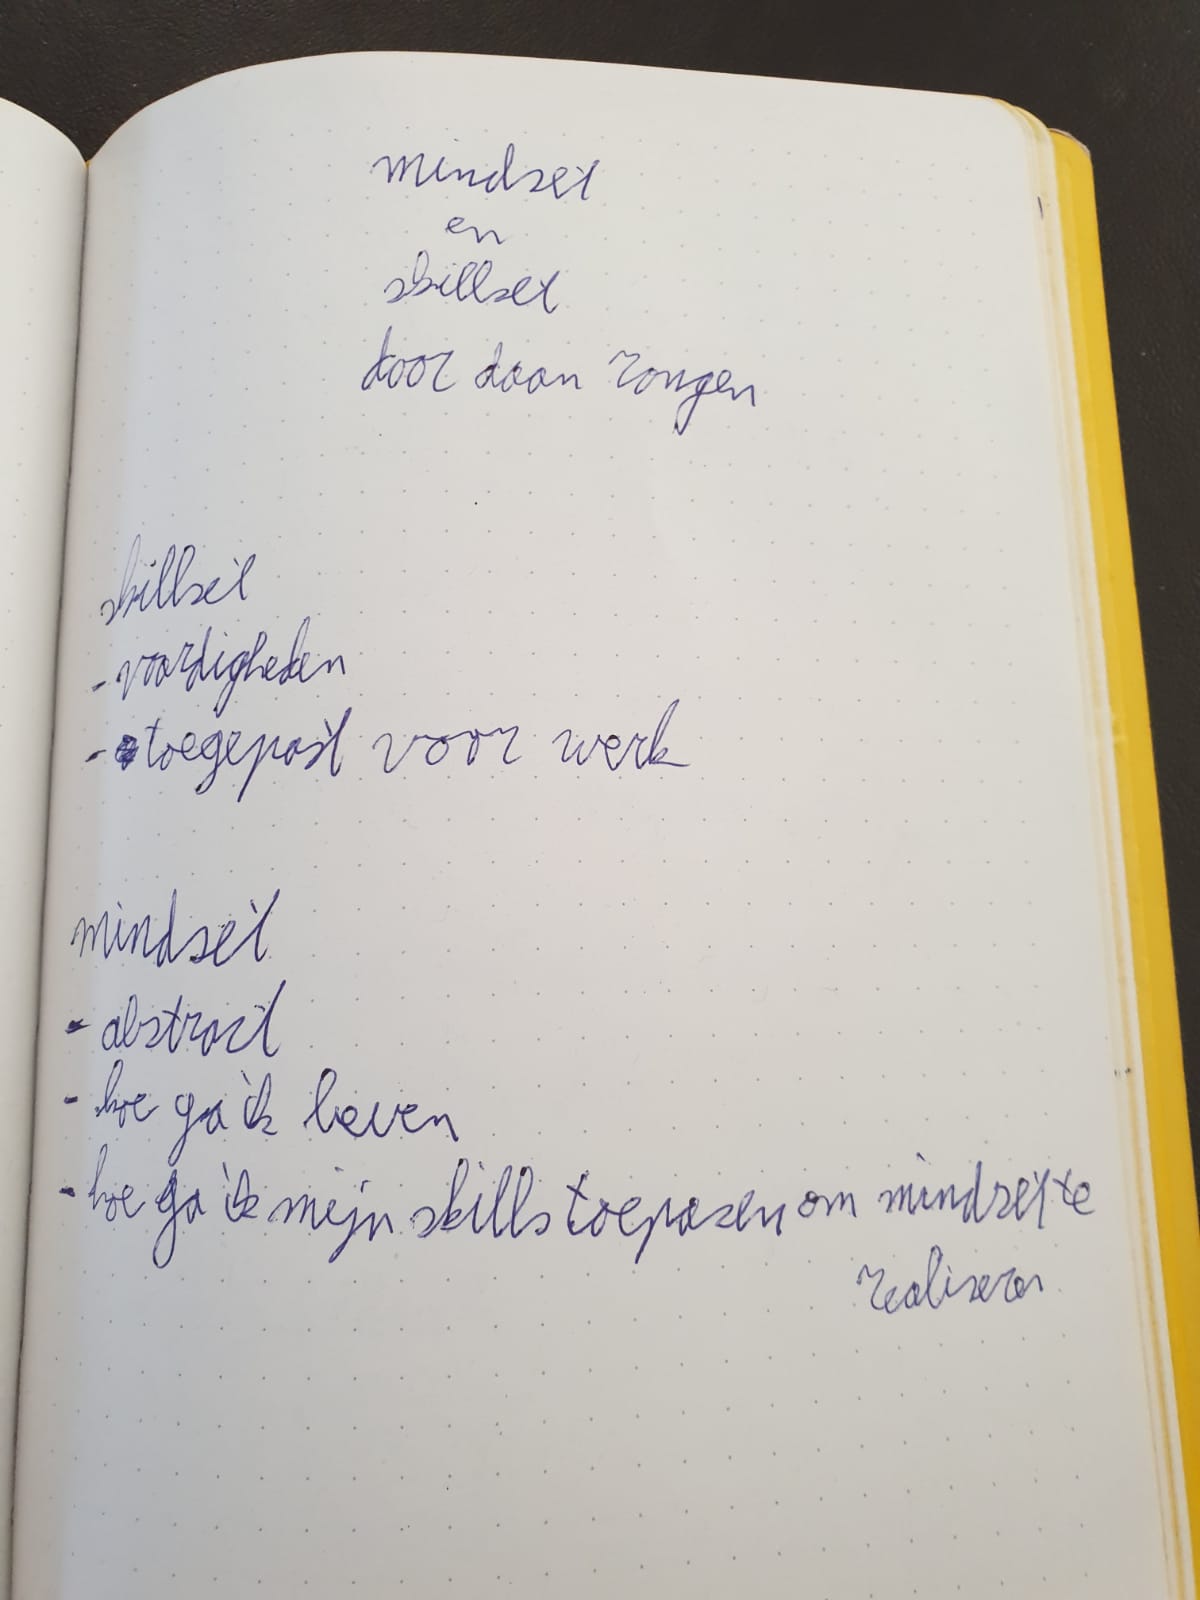 mindset
en
skillset
door daan rongen
skillset
- vaardigheden
- toegepast voor werk
mindset
- abstract
- hoe ga ik leven
- hoe ga ik mijn skills toepasen om mindset te
realiseren